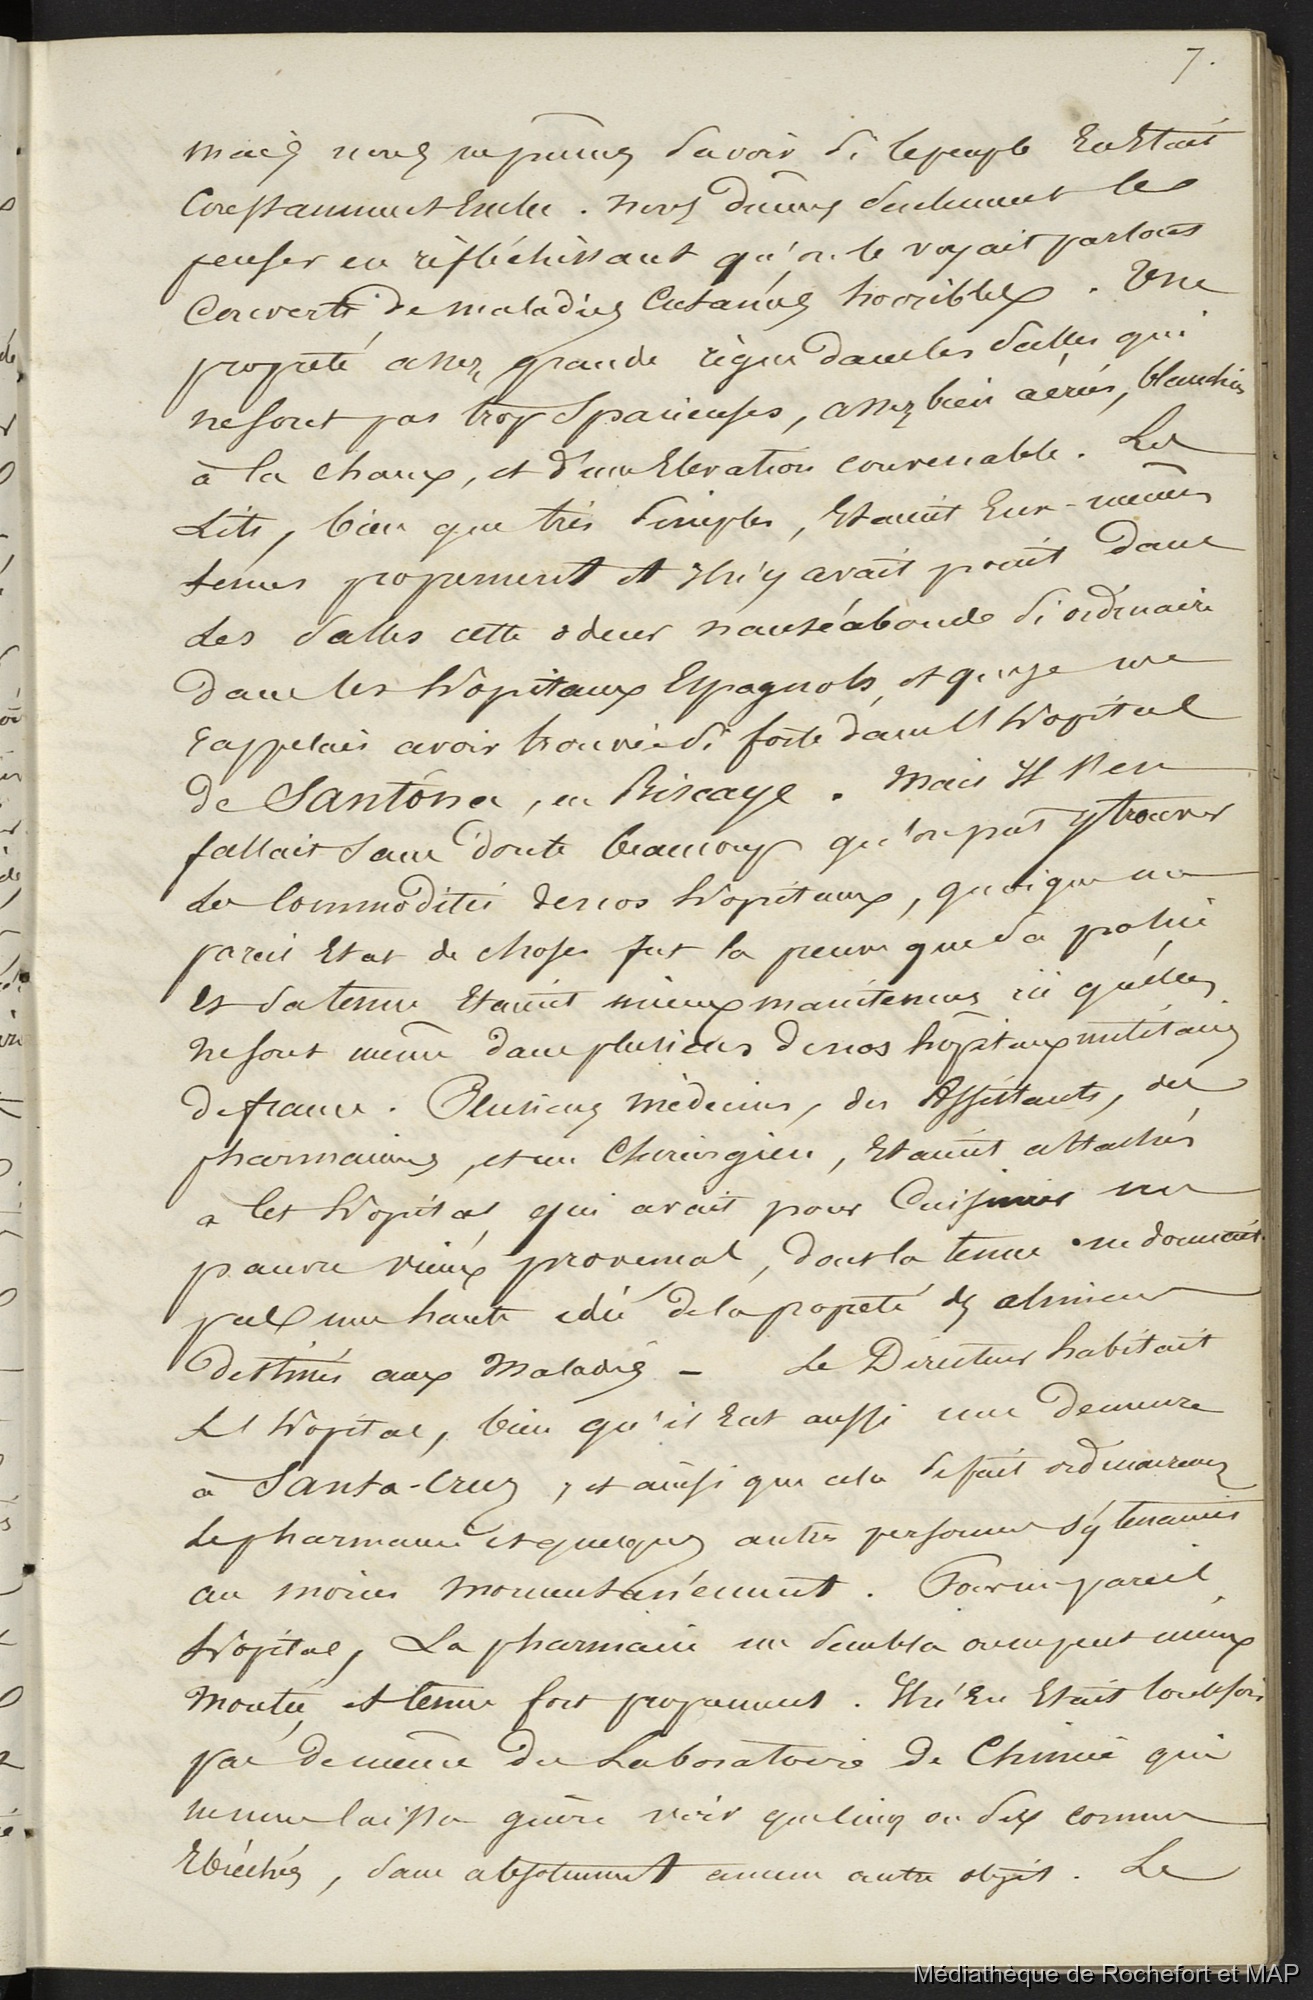 7.
mais nous ne pûmes savoir si le peuple en Etait
Constamment Exclu. nous dûmes seulement le
penser en réfléchissant qu'on le voyait partout
Couvert de maladies Cutanées horribles. Une
propreté assez grande règne dans les salles qui
ne sont pas trop Spacieuses, assez bien aérées, blanchies
à la chaux, et d'une Elevation convenable. Les
Lits, bien que très simples, Etaient Eux-mêmes
tenus proprement et Il n'y avait point dans
Les salles cette odeur nauséabonde si ordinaire
dans les hopitaux Espagnols, et que je me
rappelais avoir trouvée si forte dans L'hopital
de Santôna, en Biscaye. Mais Il s'en
fallait sans doute beaucoup qu'on put y trouver
Les Commodités de nos hopitaux, quoique un
pareil Etat de choses fut la preuve que sa police
Et sa tenue Etaient mieux maintenues ici qu'elles
ne sont même dans plusieurs de nos hôpitaux militaires
de france. Plusieurs médecins, des Assistants, des
pharmaciens, et un Chirurgien, Etaient attachés
a Cet hopital qui avait pour Cuisinier un
pauvre vieux provencal, dont la tenue ne donnait
pas une haute idée de la propreté des alimens
destinés aux Malades – Le Directeur habitait
L'hopital, bien qu'il Eut aussi une demeure
à Santa-Cruz, et ainsi que cela se fait ordinairement
Le pharmacien et quelques autres personnes s'y tenaient
au moins momentanément. Pour un pareil
hopital, La pharmacie me sembla on ne peut mieux
montée, et tenue fort proprement. Il n'En Etait toutefois
pas de même du Laboratoire de Chimie qui
ne me laissa guère voir que cinq ou six cornues
Ebréchées, sans absolument aucun autre objet. Le
Médiathèque de Rochefort et MAP